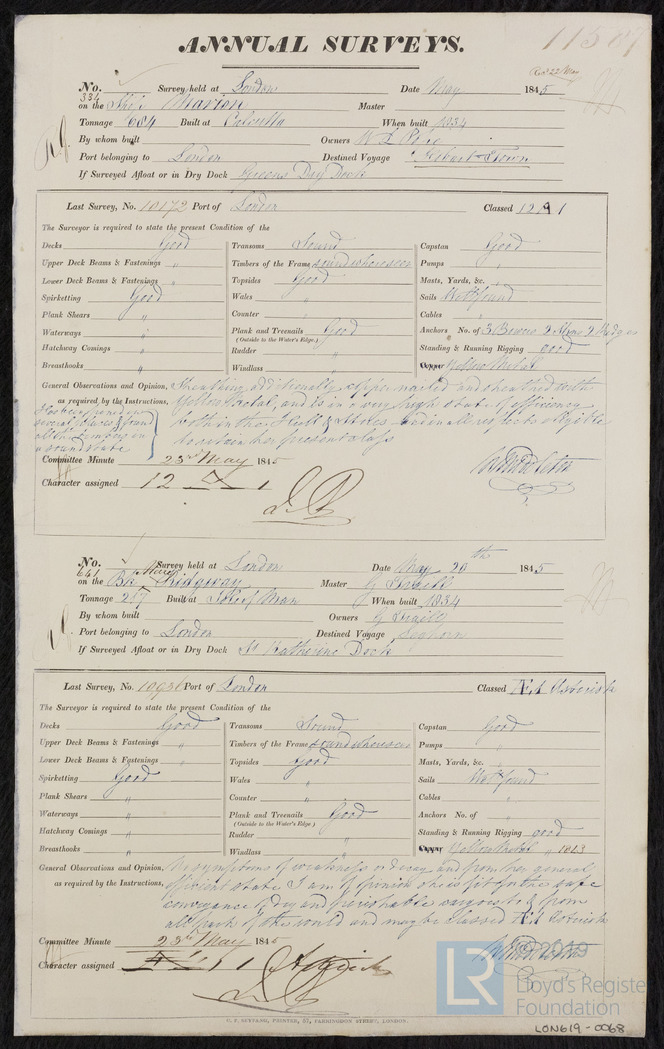 ANNUAL SURVEYS.
No. Survey held at London Date May 1845
334 on the Ship Marion Master
Tonnage 684 Built at Calcutta When built 1834
By whom built Owners W L Pope
Port belonging to London Destined Voyage Hobart Town
If Surveyed Afloat or in Dry Dock Greens Dry Dock
Last Survey, No. 10172 Port of London Classed 12 A 1
The Surveyor is required to state the present Condition of the
Decks Good Transoms Sound Capstan Good
Upper Deck Beams & Fastenings " Timbers of the Frame sound where seen Pumps "
Lower Deck Beams & Fastenings " Topsides Good Masts, Yards, &c. "
Spirketting Good Wales " Sails Well found
Plank Shears " Counter " Cables "
Waterways " Plank and Treenails Good Anchors No. of 3 Bowers
(Outside to the Water's Edge.)
Hatchway Comings " Rudder " Standing & Running Rigging good
Breasthooks " Windlass " Copper Yellow Metal
General Observations and Opinion, Sheathing additionally copper nailed and sheathed with
as required by the Instructions, Yellow Metal, and is in a very high state of efficiency
both in her Hull & stores and in all respects eligible
to retain her present class
Has been opened in
several places & found
all the timbers in
a sound state
Committee Minute 23rd May 1845
Character assigned 12 A 1
No. Survey held at London Date May 20th 1845
641 on the Bk Mary Ridgway Master G Traill
Tonnage 217 Built at Isle of Man When built 1834
By whom built Owners G Traill
Port belonging to London Destined Voyage Leghorn
If Surveyed Afloat or in Dry Dock St Katherine Dock
Last Survey, No. Port of London Classed Æ 1 Asterisk
The Surveyor is required to state the present Condition of the
Decks Good Transoms Sound Capstan Good
Upper Deck Beams & Fastenings " Timbers of the Frame sound where seen Pumps "
Lower Deck Beams & Fastenings " Topsides good Masts, Yards, &c. "
Spirketting Good Wales " Sails Well found
Plank Shears " Counter " Cables "
Waterways " Plank and Treenails Good Anchors No. of "
(Outside to the Water's Edge.)
Hatchway Comings " Rudder " Standing & Running Rigging good
Breasthooks " Windlass " Copper Yellow Metal " 1843
General Observations and Opinion, No symptoms of weakness or decay and from her general
as required by the Instructions, efficient state I am of opinion she is fit for the safe
conveyance of dry and perishable cargoes to & from
all parts of the world and may be classed Æ 1 Asterisk
Committee Minute 23rd May 1845
Character assigned Æ 1
C. F. SEYFANG, PRINTER, 57, FARRINGDON STREET, LONDON.
LR
2019
Lloyd's Register
Foundation
LON619-0068